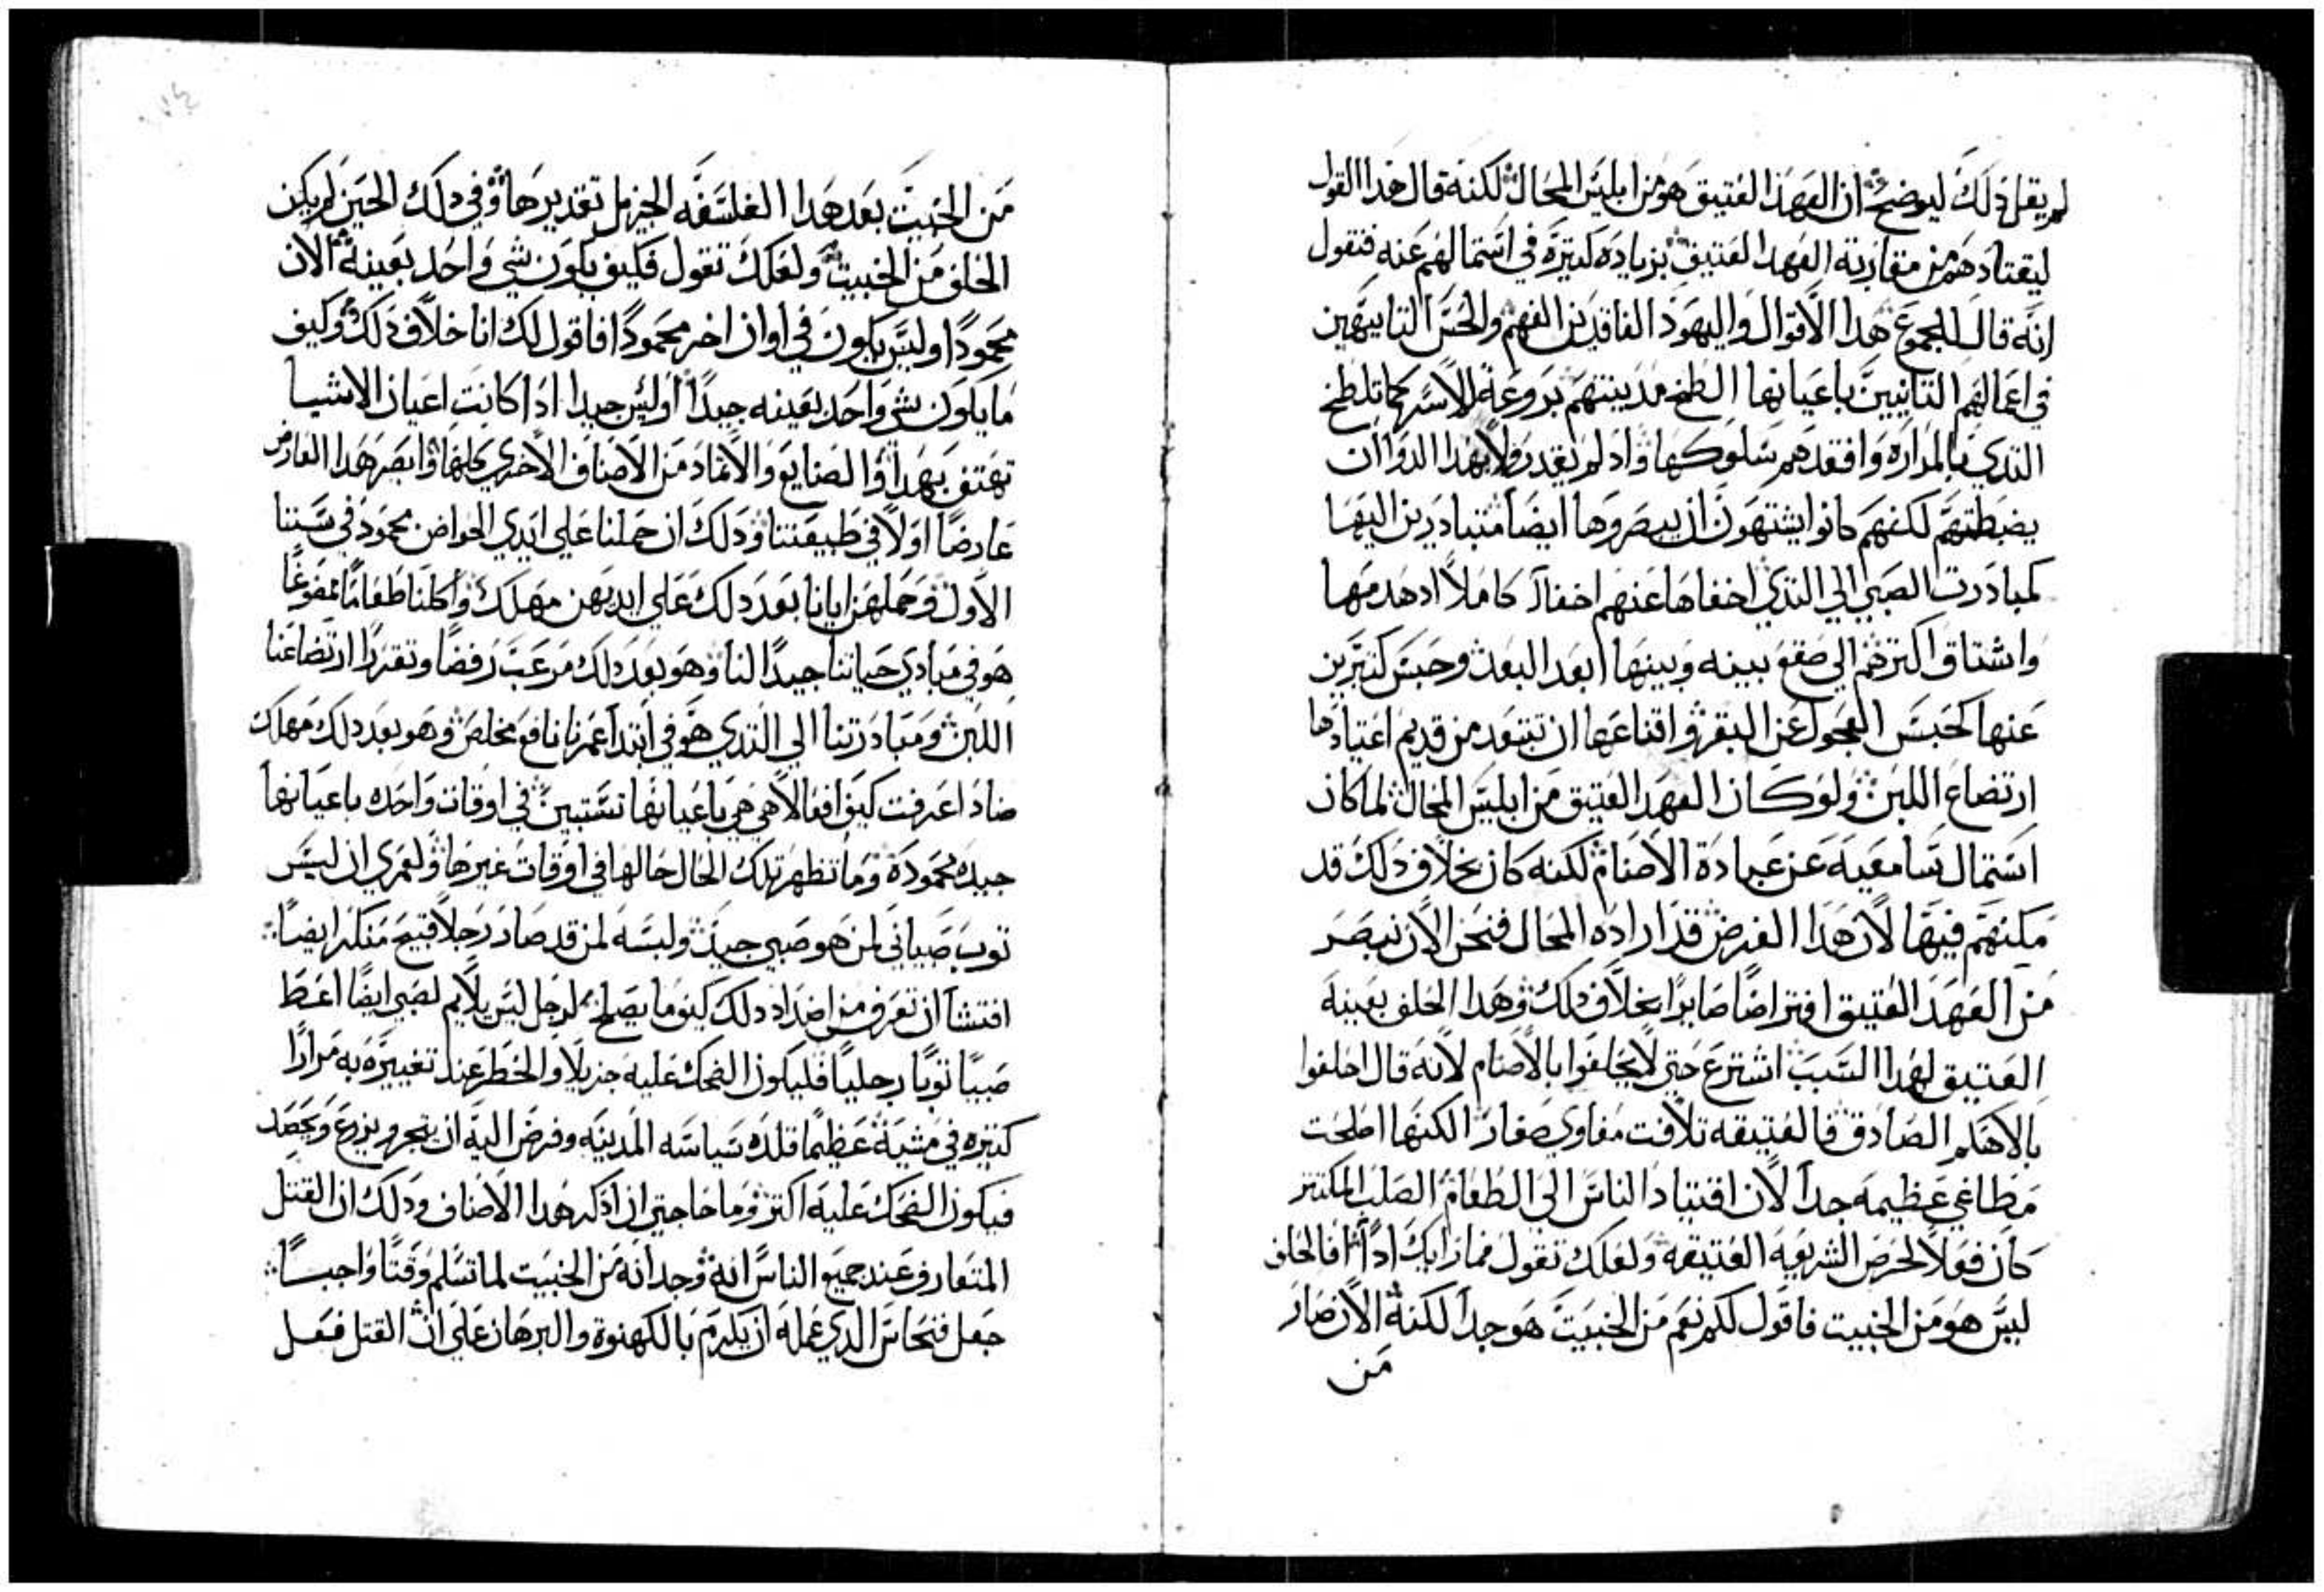 لم يقل ذلك ليوضح ان العهد العتيق هو من ابليس المحال لكنه قال هذا القول
ليقتادهم من مقارنة العهد العتيق بزياده كتيره في استمالهم عنه فنقول
انه قال لمجموع هذا الاقوال واليهود الفاقدين الفهم والحس التابيهين
في اعمالهم التانيين باعيانها الطخ مدينتهم بروعة الاسر كما تلطخ
التدي بالمراره وافقدهم سلوكها واد لم تقدر ولا بهدا الدوا ان
يضبطتهم لكنهم كانوا يشتهون ان يبصروها ايضا متبادرين اليها
كمبادرت الصبي الي التدي اخفاها عنهم اخفاء كاملا اد هدمها
واشتاق اكترهم الي صقع بينه وبينها ابعد البعد وحبس كتيرين
عنها كحبس العجول عن البقر واقناعها ان تبتعد من قديم اعتيادها
ارتضاع اللبن ولو كان العهد العتيق من ابليس المحال لما كان
استمال سامعيه عن عبادة الاصنام لكنه كان بخلاف دلك قد
مكنهم فيها لان هدا الغرض قد اراده المحال فنحن الان نبصر
من العهد العتيق افتراضا صايرا بخلاف دلك وهدا الحلف بعينه
العتيق لهدا السبب اشترع حتي لا يحلفوا بالاصنام لانه قال احلفوا
بالاهلم الصادق فالعتيقه تلافت مغاوي صغار لكنها اصلحت
مطاغي عظيمه جدا لان اقتياد الناس الي الطعام الصلب المكتنز
كان فعلا لحرص الشريعه العتيقه ولعلك تقول فما رايك ادا افالحلف
ليس هو من الخبيت فاقول لكم نعم من الخبيت هو جدا لكنه الان صار
من
من الخبيت بعد هدا الفلسفه الجزيل تقديرها وفي دلك الحين لم يكن
الحلف من الخبيت ولعلك تقول فكيف يكون شي واحد بعينه الان
محمودا وليس يكون في اوان اخر محمودا فاقول لك انا خلاف دلك وكيف
ما يكون شي واحد بعينه جيدا اوليس جيدا ادا كانت اعيان الاشيا
تهتف بهدا والصنايع والاتمار من الاصناف الاخري كلها وابصر هدا العارض
عارضا اولا في طبيعتنا ودلك ان حملنا علي ايدي الحواضن محمود في سننا
الاول وحملهن ايانا بعد دلك علي ايديهن مهلك واكلنا طعاما ممضوغا
هو في مبادي حياتنا جيدا لنا وهو بعد دلك مرعب رفضا وتقززا ارتضاعنا
اللبن ومبادرتنا الي التدي هو في ابتدا عمرنا نافع مخلص وهو بعد دلك مهلك
ضاد اعرفت كيف افعالا هي هي باعيانها تستبين في اوقات واحده باعيانها
جيده محموده وما تظهر تلك الحال حالها في اوقات غيرها ولعمري ان ليس
توب صبياني لمن هو صبي جيد ولبسه لمن قد صار رجلا قبيح منكر ايضا
افتشا ان تعرف من اضداد دلك كيف ما يصلح لرجل ليس يلايم لصبي ايضا اعط
صبيا توبا رجليا فليكون الضحك عليه جزيلا والخطر عند تغييره به مرارا
كتيره في مشيه عظيما قلده سياسه المدينه وفرض اليه ان يتجر ويزرع ويحصد
فيكون الضحك عليه اكتر وما حاجتي ان ادكر هدا الاصناف ودلك ان القتل
المتعارف عند جميع الناس انه وجد انه من الخبيت لما تسلم وقتا واجبا
جعل فنحاس الدي عمله ان يكرم بالكهنوة والبرهان علي ان القتل فعل